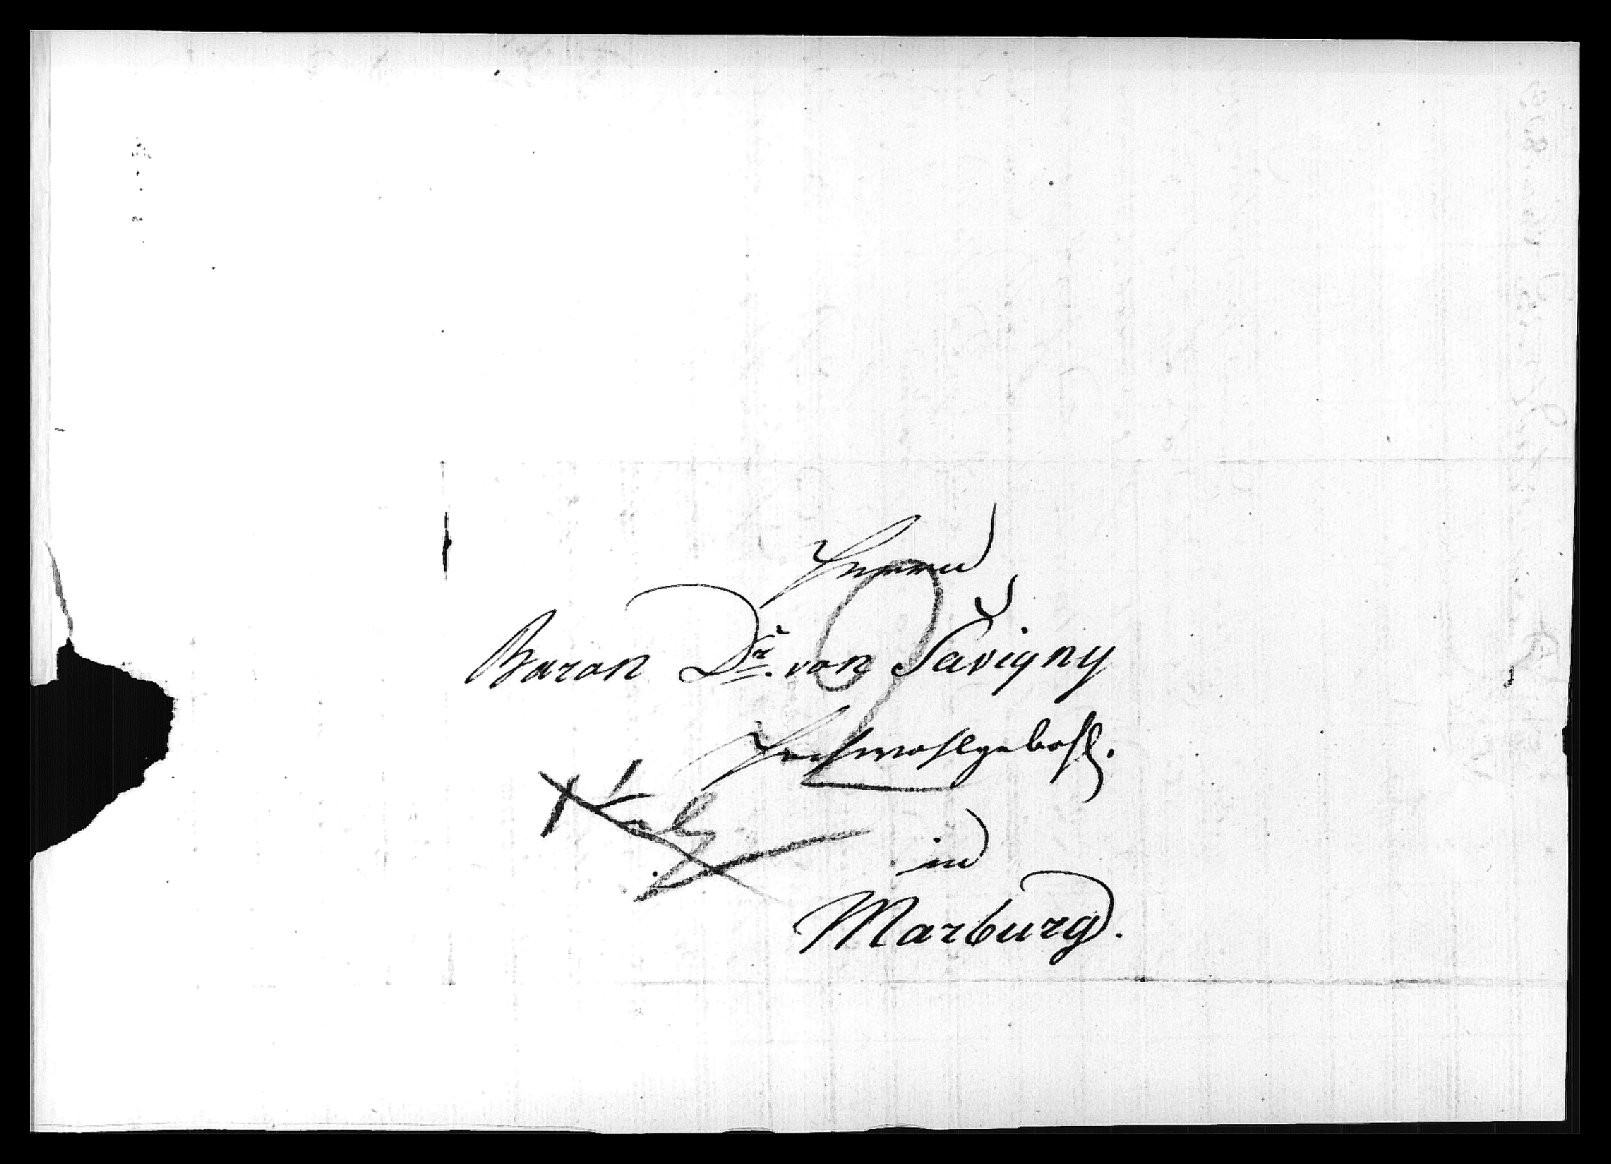 Herrn
Baron Dr. von Savigny
Hochwohlgebohr.
in
Marburg.